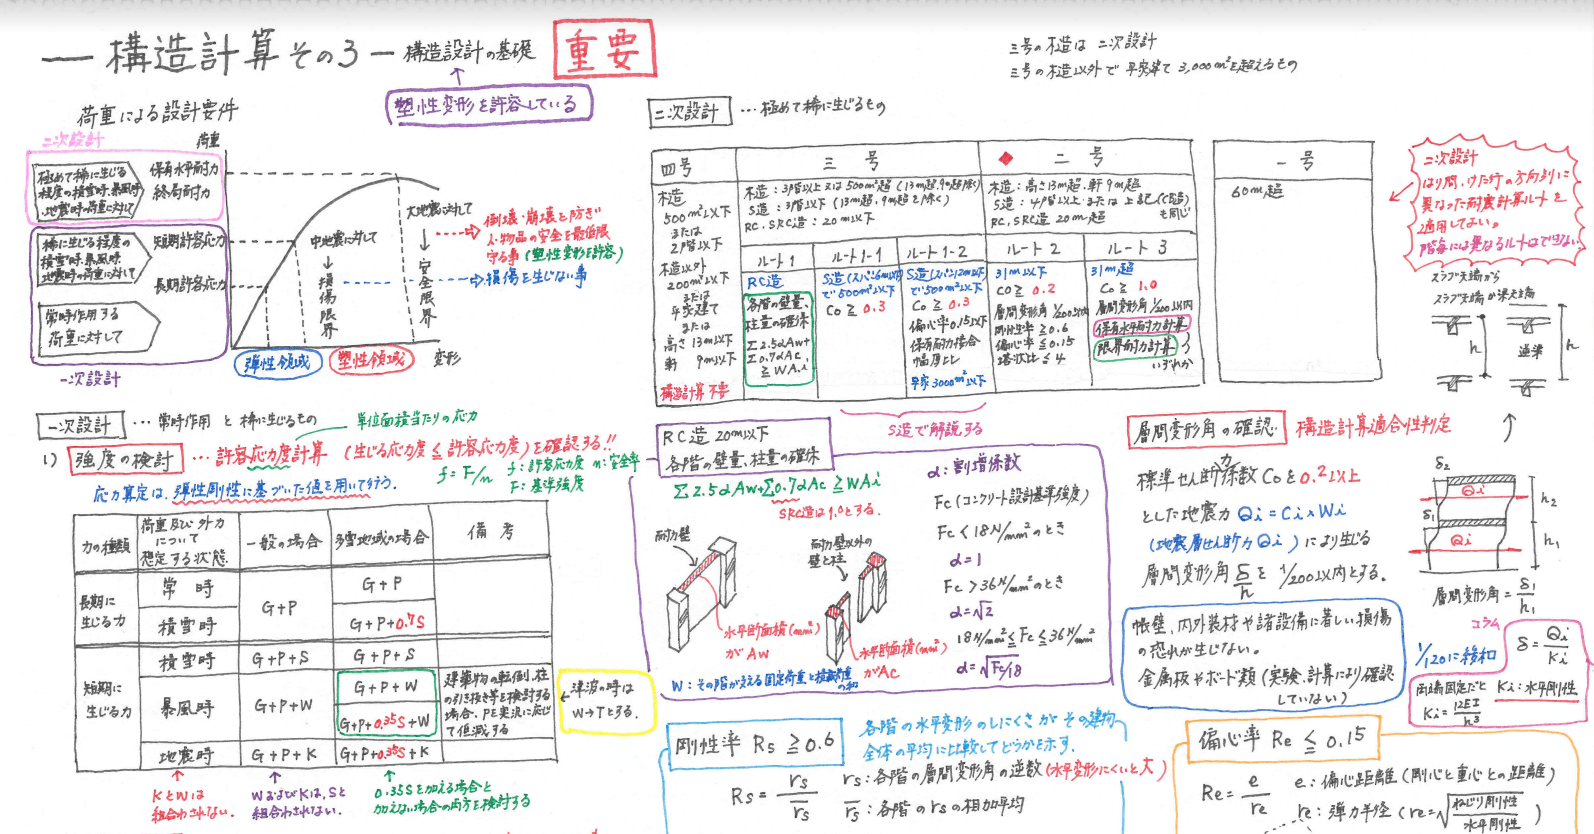 構造計算 その3 ― 構造設計の基礎
重要
塑性変形を許容している
三号の木造は 二次設計
三号の木造以外で 平家建て 3,000m²を超えるもの
荷重による設計要件
二次設計
極めて稀に生じる
程度の積雪時、暴風時
地震時の荷重に対して
稀に生じる程度の
積雪時、暴風時
地震時の荷重に対して
常時作用する
荷重に対して
一次設計
荷重
保有水平耐力
終局耐力
短期許容応力
長期許容応力
中地震に対して
↓
損傷限界
大地震に対して
↓
安全限界
倒壊・崩壊を防ぎ
人・物品の安全を最低限
守る事(塑性変形を許容)
損傷を生じない事
弾性領域
塑性領域
変形
二次設計 …極めて稀に生じるもの
四号
木造
500m²以下
または
2階以下
木造以外
200m²以下
または
平家建て
または
高さ13m以下
軒 9m以下
構造計算不要
三号
木造：3階以上又は500m²超(13m超、9m超除く)
S造：3階以下(13m超、9m超を除く)
RC、SRC造：20m以下
ルート1
RC造
各階の壁量、
柱量の確保
Σ2.5αAw+
Σ0.7αAc
≧WAi
ルート1-1
S造(スパン6m以下)
で500m²以下
Co≧0.3
ルート1-2
S造(スパン12m以下)
で500m²以下
Co≧0.3
偏心率0.15以下
保有耐力接合
幅厚比
平家3000m²以下
二号
木造：高さ13m超、軒9m超
S造：4階以上または上記(C造)
も同じ
RC、SRC造 20m超
ルート2
31m以下
Co≧0.2
層間変形角1/200以内
剛性率≧0.6
偏心率≦0.15
塔状比≦4
ルート3
31m超
Co≧1.0
層間変形角1/200以内
保有水平耐力計算
限界耐力計算
いずれか
一号
60m超
二次設計
はり間、けた行の方向よりに
異なった耐震計算ルートを
適用してよい。
階毎には異なるルートはできない
スラブ天端から
スラブ天端か梁天端
h
逆梁
h
S造で解説する
一次設計 …常時作用 と 稀に生じるもの
単位面積当たりの応力
1) 強度の検討 …許容応力度計算 (生じる応力度≦許容応力度)を確認する!!
応力算定は、弾性剛性に基づいた値を用いて行う。
f=F/n f：許容応力度 n：安全率
F：基準強度
力の種類 荷重及び外力について想定する状態 一般の場合 多雪地域の場合 備考
長期に生じる力 常時 G+P G+P
積雪時 G+P+0.7S
短期に生じる力 積雪時 G+P+S G+P+S
暴風時 G+P+W G+P+W
G+P+0.35S+W
建築物の転倒、柱
の引抜き等を検討する
場合、Pを実況に応じ
て低減する
地震時 G+P+K G+P+0.35S+K
津波の時は
W→Tとする。
KとWは
組合わされない。
WおよびKは、Sと
組合わされない。
0.35Sを加える場合と
加えない場合の両方を検討する
RC造 20m以下
各階の壁量、柱量の確保
Σ2.5αAw+Σ0.7αAc≧WAi
SRC造は1.0とする。
耐力壁
水平断面積(mm²)
がAw
耐力壁以外の
壁と柱
水平断面積(mm²)
がAc
W：その階が支える固定荷重と積載荷重の和
α：割増係数
Fc(コンクリート設計基準強度)
Fc<18N/mm²のとき
α=1
Fc>36N/mm²のとき
α=√2
18N/mm²≦Fc≦36N/mm²
α=√Fc/18
層間変形角の確認 構造計算適合性判定
標準せん断力係数Coを0.2以上
とした地震力 Qi=Ci×Wi
(地震層せん断力Qi)により生じる
層間変形角 δ/h を 1/200以内とする。
帳壁、内外装材や諸設備に著しい損傷
の恐れが生じない。
金属板やボード類(実験、計算により確認
していない)
1/120に緩和
δ2
Qi
h2
δ1
Qi
h1
層間変形角=δ1/h1
コラム
δ=Qi/Ki
両端固定だと Ki：水平剛性
Ki=12EI/h³
剛性率 Rs≧0.6
各階の水平変形のしにくさがその建物
全体の平均に比較してどうかを示す。
Rs=rs/r̄s
rs：各階の層間変形角の逆数(水平変形にくいと大)
r̄s：各階のrsの相加平均
偏心率 Re≦0.15
Re=e/re
e：偏心距離(剛心と重心との距離)
re：弾力半径(re=√ねじり剛性/水平剛性)